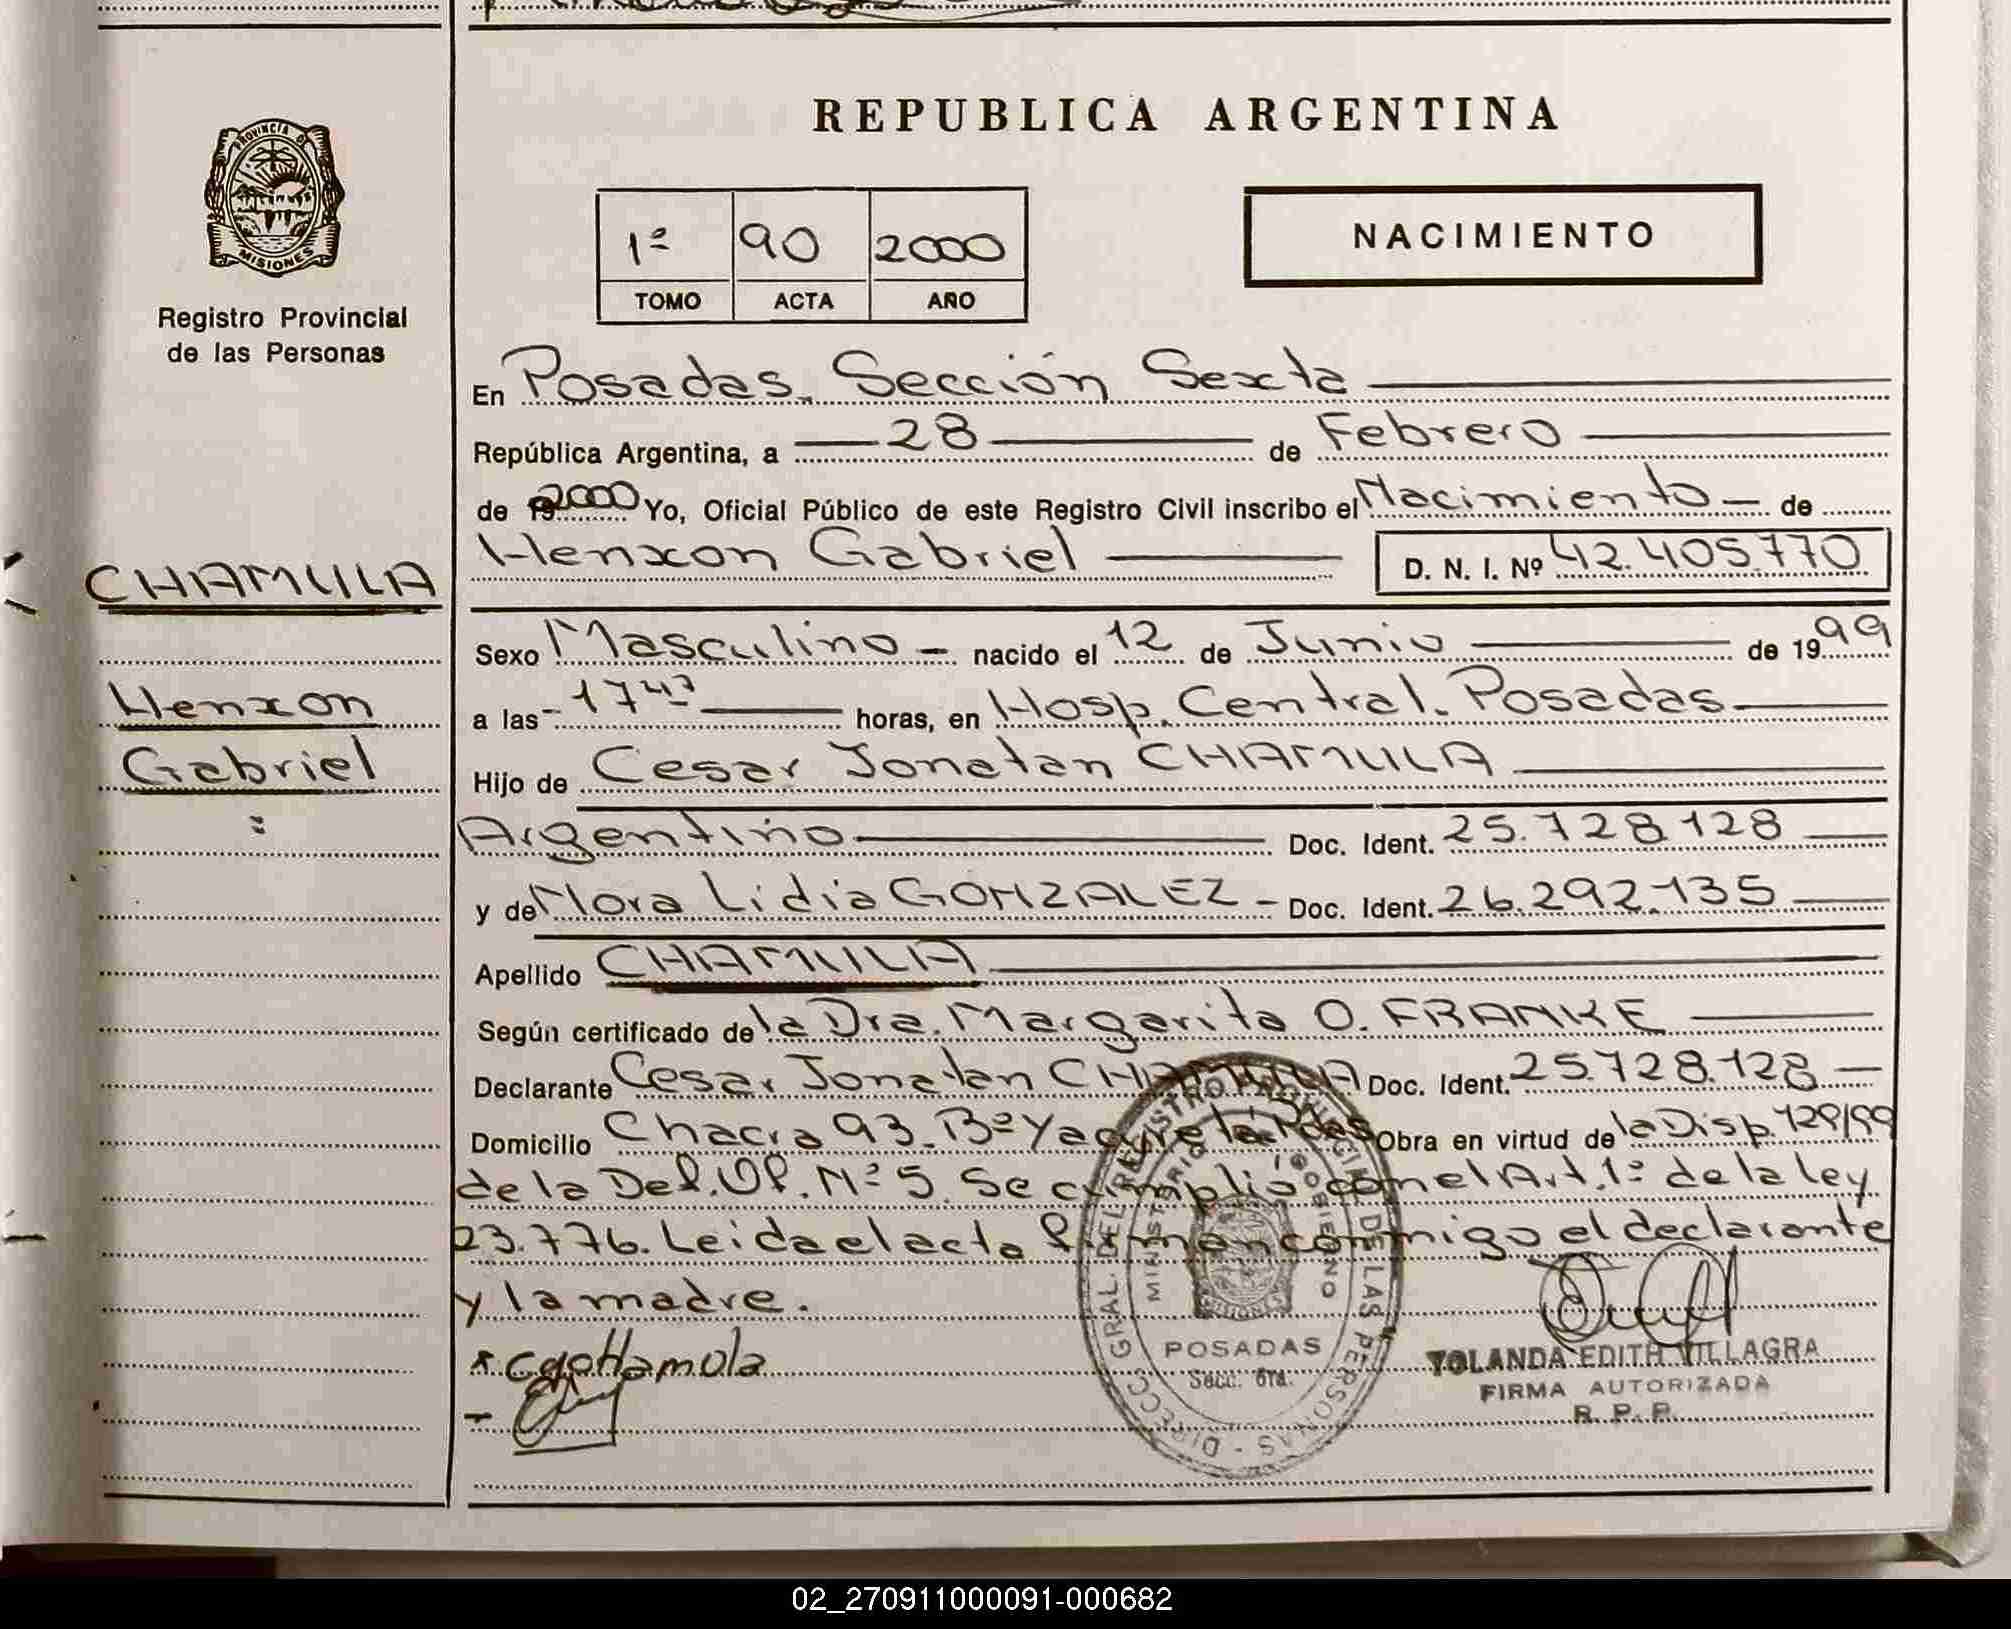 REPUBLICA ARGENTINA
PROVINCIA DE MISIONES
Registro Provincial
de las Personas
1º 90 2000
TOMO ACTA AÑO
NACIMIENTO
En Posadas, Sección Sexta
República Argentina, a 28 de Febrero
de 2000 Yo, Oficial Público de este Registro Civil inscribo el Nacimiento de
Henxon Gabriel D. N. I. Nº 42.405.770
CHAMULA
Henxon
Gabriel
Sexo Masculino - nacido el 12 de Junio de 1999
a las 17 47 horas, en Hosp. Central. Posadas
Hijo de Cesar Jonatan CHAMULA
Argentino Doc. Ident. 25.728.128
y de Nora Lidia GONZALEZ - Doc. Ident. 26.292.135
Apellido CHAMULA
Según certificado de la Dra. Margarita O. FRANKE
Declarante Cesar Jonatan CHAMULA Doc. Ident. 25.728.128
Domicilio Chacra 93. Bº Yacyreta Pdas Obra en virtud de la Disp. 129/99
de la Del. Of. Nº 5. Se cumplió con el Art. 1º de la ley
23.776. Leida el acta firman conmigo el declarante
y la madre.
DIRECC. GRAL. DEL REGISTRO PROVINCIAL DE LAS PERSONAS
MINISTERIO DE GOBIERNO
POSADAS
Secc. 6ta.
YOLANDA EDITH VILLAGRA
FIRMA AUTORIZADA
R. P. P.
02_270911000091-000682